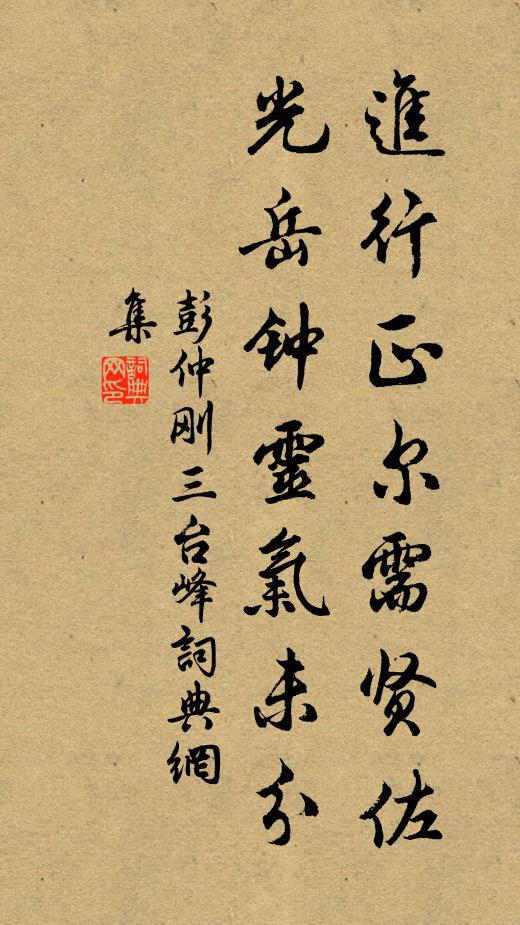 進行正尔需贤佐
光岳钟靈氣未分
彭仲刚三台峰詞典網
集
詞典
网印